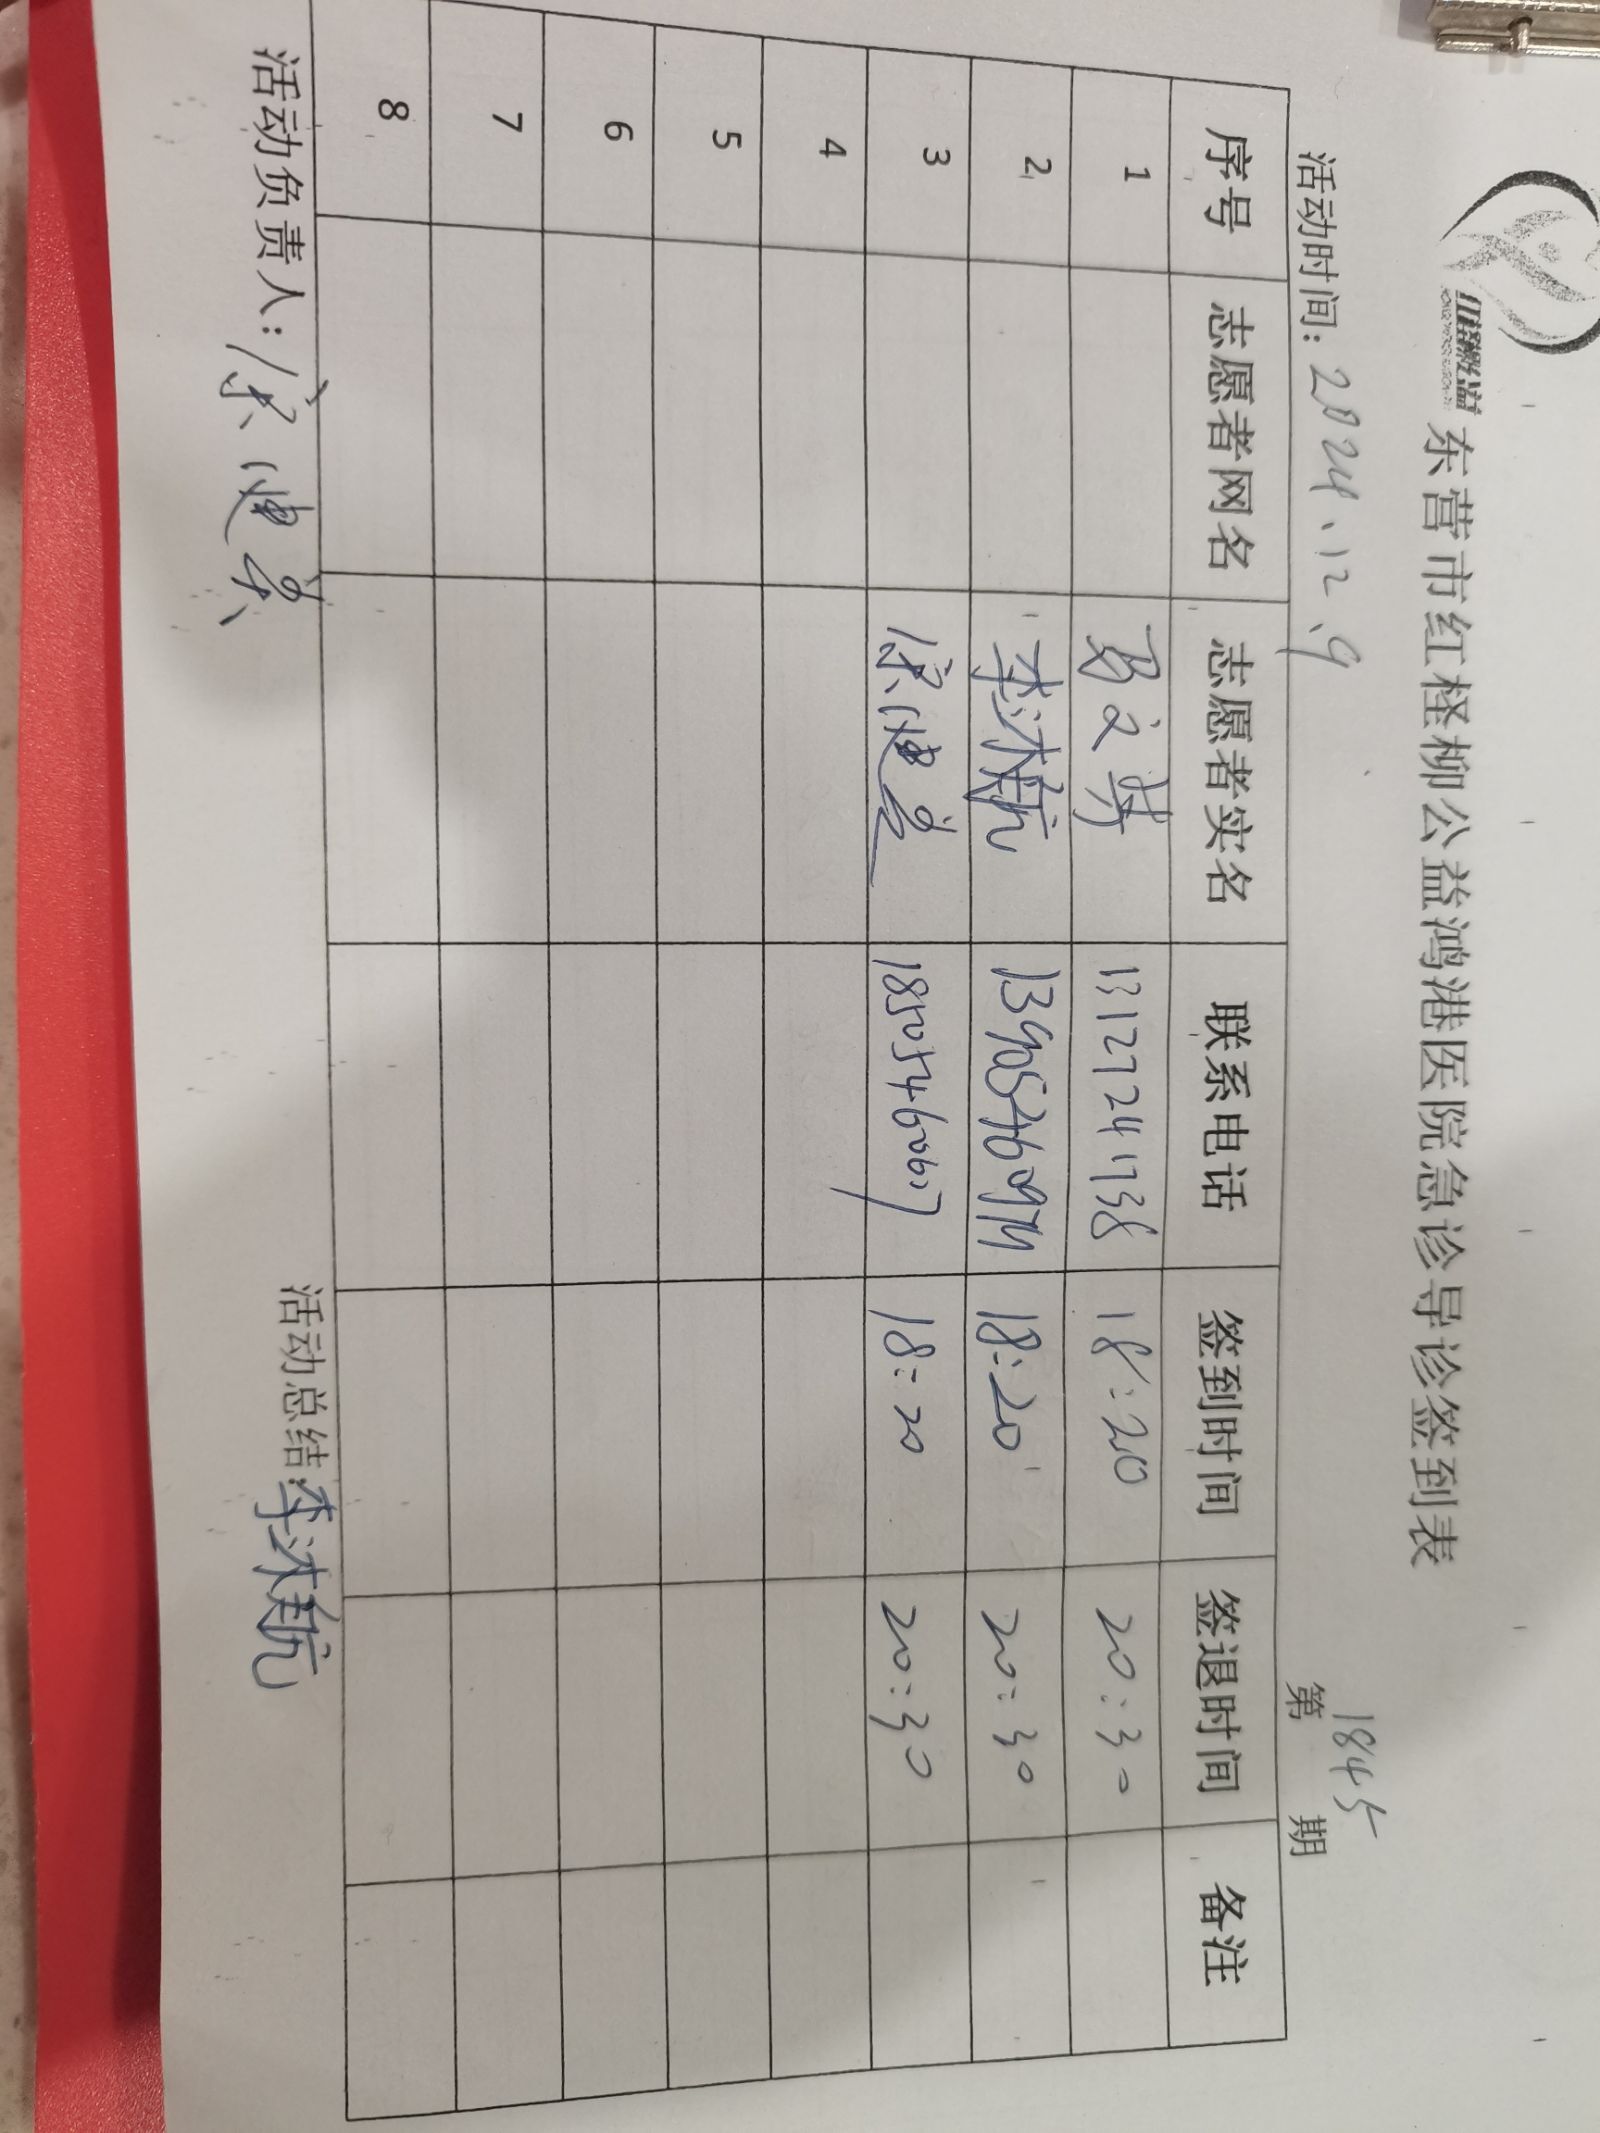 红柽柳公益
东营市红柽柳公益鸿港医院急诊导诊签到表
活动时间：2024、12、9 第 1845 期
序号 志愿者网名 志愿者实名 联系电话 签到时间 签退时间 备注
1 13127241738 18:20 20:30
2 李沐航 13905460974 18:20 20:30
3 18505460607 18:20 20:30
4
5
6
7
8
活动负责人： 活动总结：李沐航